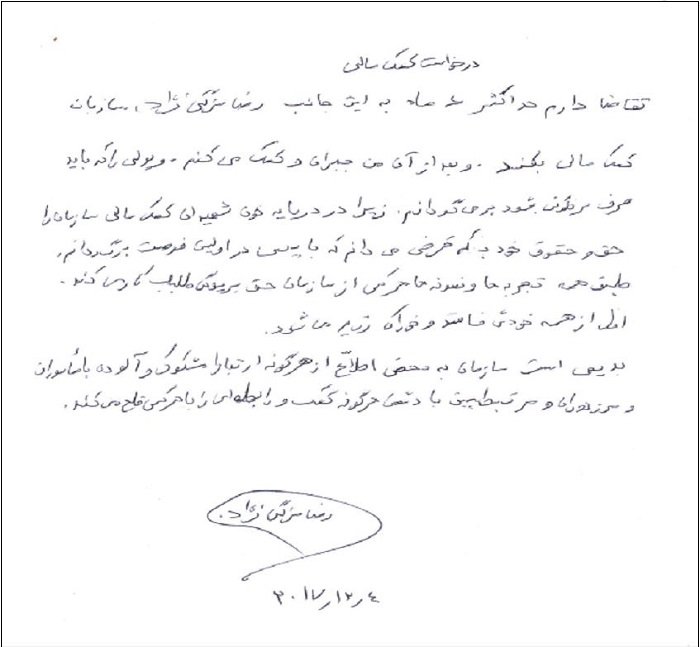 درخواست کمک مالی
تقاضا دارم حداکثر ٦ ماه به این جانب رضا مزگی نژاد، سازمان
کمک مالی بکند. و بعد از آن من جبران و کمک می کنم. و پولی را که باید
صرف سرنگونی شود برمی گردانم. زیرا در دریای خون شهیدان کمک مالی سازمان را
حق و حقوق خود بلکه قرضی می دانم که بایستی در اولین فرصت برگردانم.
طبق همه تجربه ها و نمونه ها هرکس از سازمان حق طلب کاری کند.
اول از همه خودش فاسد و خوراک رژیم می شود.
بدیهی است سازمان به محض اطلاع از هرگونه ارتباط مشکوک و آلوده با مأموران
و مزدوران و مرتبطین با دشمن هرگونه کمک و رابطه ای را با هرکس قطع می کند.
رضا مزگی نژاد.
٢٠١٧ر١٢ر٤